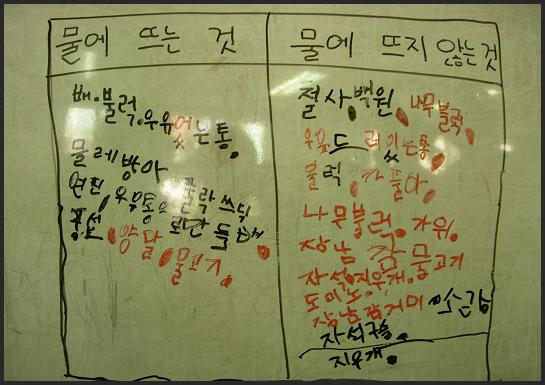 물에 뜨는 것
배.블럭.우유 있는 통.
물레방아
연필, 우유통.플락쓰틱
풍선
양달.물고기.
물에 뜨지 않는것
철사.백원.나무블럭.
우유드러있는통.
블럭.가풀아.
나무블럭.가위.
장남감물고기
자석.지우개.
도이노.
장남감거미.소금
자석구슬.
지우개.